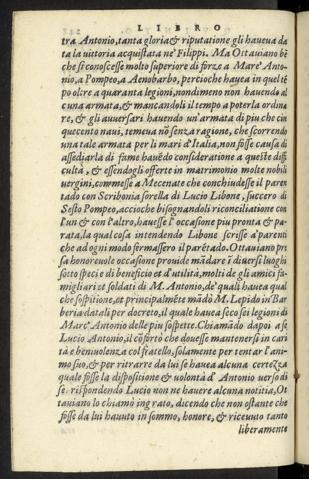 LIBRO
tra Antonio, tanta gloria & riputatione gli haueua da
ta la uittoria acquistata ne' Filippi. Ma Ottauiano bẽ
che si conoscesse molto superiore di forze a Marc' Anto-
nio, a Pompeo, a Aenobarbo, percioche hauea in quel tẽ
po oltre a quaranta legioni, nondimeno non hauendo al
cuna armata, & mancandoli il tempo a poterla ordina
re, & gli auuersari hauendo un'armata di piu che cin
quecento naui, temeua nõ senza ragione, che scorrendo
una tale armata per li mari d'Italia, non fosse causa di
assediarla di fame hauẽdo consideratione a queste diffi
cultà, & essendogli offerte in matrimonio molte nobili
uergini, commesse a Mecenate che conchiudesse il paren
tado con Scribonia sorella di Lucio Libone, suocero di
Sesto Pompeo, acciochè bisognandoli riconciliatione con
l'un & con l'altro, hauesse l'occasione piu pronta & pa-
rata, la qual cosa intendendo Libone scrisse a' parenti
che ad ogni modo fermassero il parẽtado. Ottauiano pre
sa honoreuole occasione prouide mãdare ĩ diuersi luoghi
sotto specie di beneficio et d'utilità, molti de gli amici fa-
migliari et soldati di M. Antonio, de' quali hauea qual
che sospitione, et principalmẽte mãdò M. Lepido in Bar
beria datali per decreto, il quale hauea seco sei legioni di
Marc' Antonio delle piu sospette. Chiamãdo dapoi a se
Lucio Antonio, il cõfortò che douesse mantenersi in cari
tà e beniuolenza col fratello, solamente per tentar l'ani-
mo suo, & per ritrarre da lui se hauea alcuna certezza
quale fosse la dispositione & uolontà d' Antonio uerso di
se. rispondendo Lucio non ne hauere alcuna notitia, Ot
tauiano lo chiamò ingrato, dicendo che non ostante che
fosse da lui hauuto in sommo, honore, & riceuuto tanto
liberamente